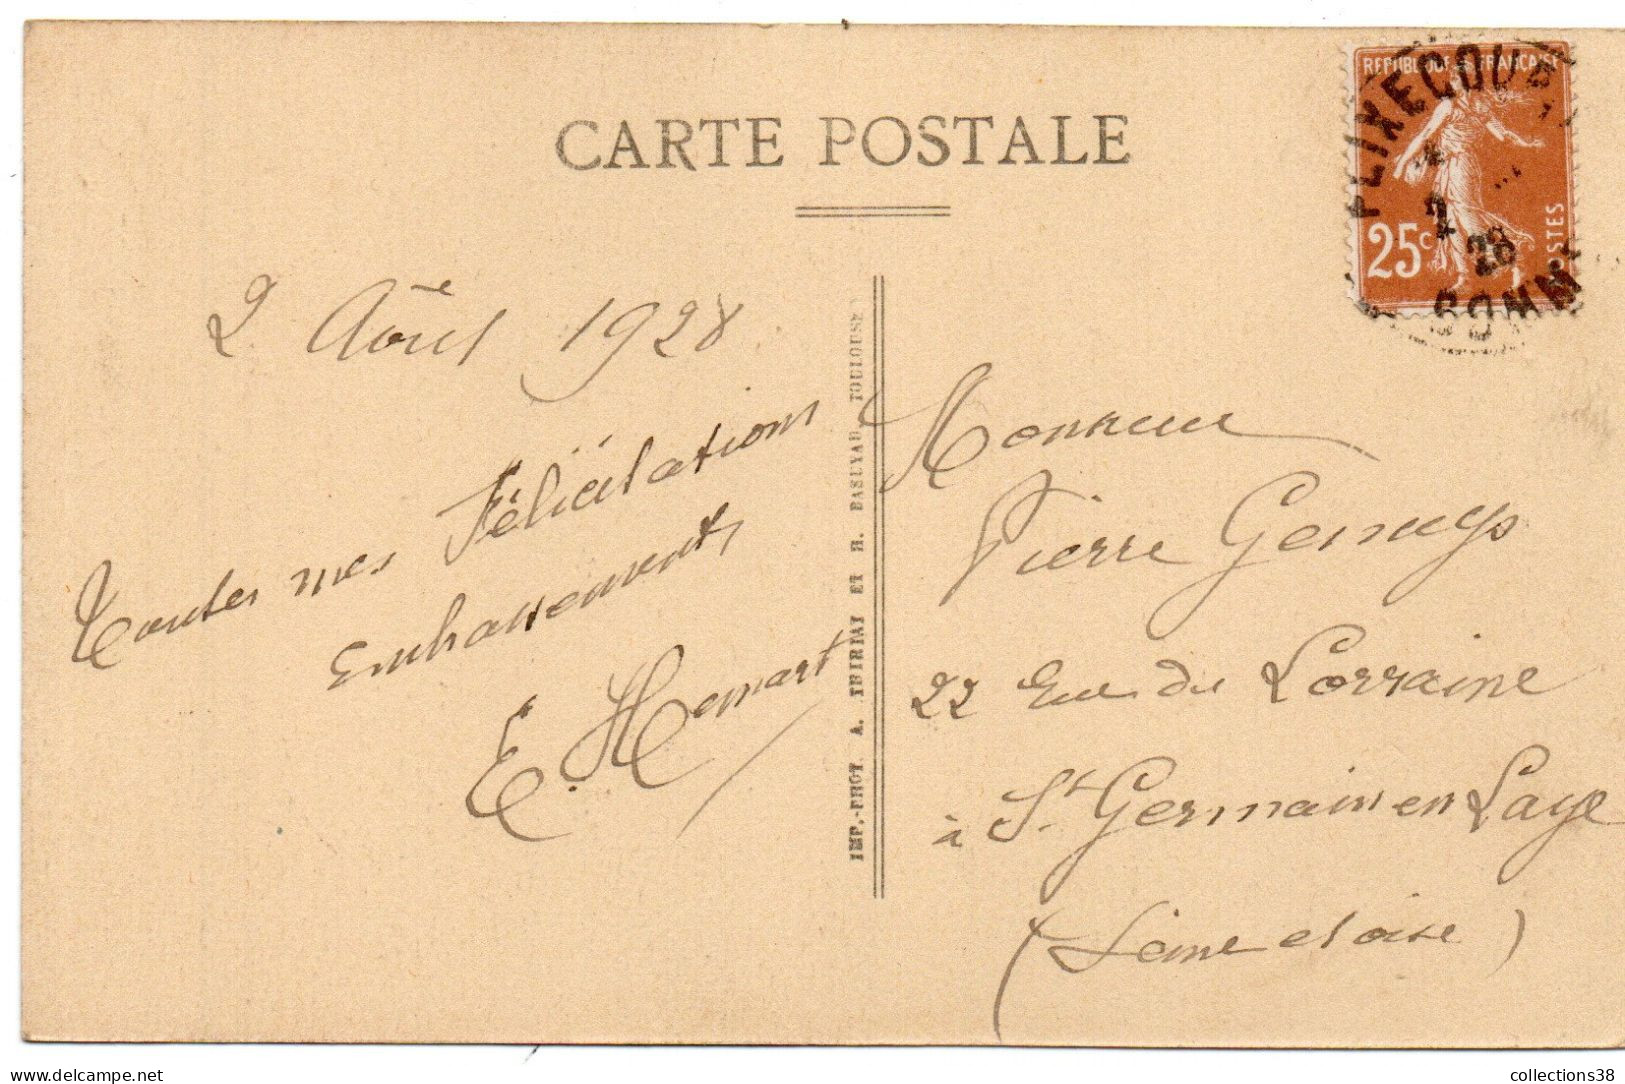 CARTE POSTALE
REPUBLIQUE FRANCAISE
25c
POSTES
FLIXECOURT
28
SOMME
2 Août 1928
Toutes mes Félicitations
Embrassements
E. Hemart
IMP.-PHOT. A. THIRIAT ET H. BASUYAU TOULOUSE
Monsieur
Pierre
22 Rue de Lorraine
à St. Germain en Laye
(Seine et oise)
www.delcampe.net
collections38